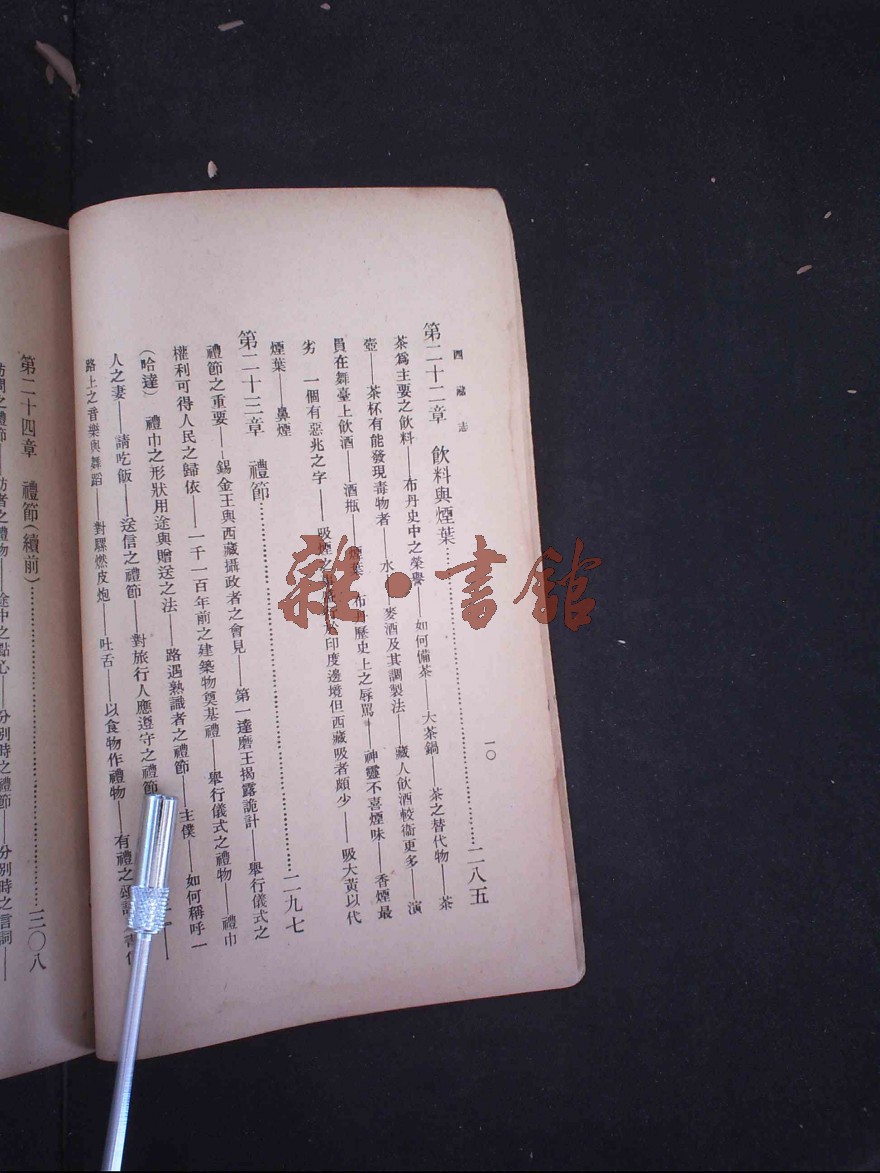 西藏志
一〇
第二十二章 飲料與煙葉……二八五
茶爲主要之飲料——布丹史中之榮譽——如何備茶——大茶鍋——茶之替代物——茶
壺——茶杯有能發現毒物者——水——麥酒及其調製法——藏人飲酒較衞更多——演
員在舞臺上飲酒——酒瓶——煙葉——布丹歷史上之辱罵——神靈不喜煙味——香煙最
劣 一個有惡兆之字——吸煙之於印度邊境但西藏吸者頗少——吸大黃以代
煙葉——鼻煙
第二十三章 禮節……二九七
禮節之重要——錫金王與西藏攝政者之會見——第一達磨王揭露詭計——舉行儀式之
權利可得人民之歸依——一千一百年前之建築物奠基禮——舉行儀式之禮物——禮巾
(哈達) 禮巾之形狀用途與贈送之法——路遇熟識者之禮節——主僕——如何稱呼一
人之妻——請吃飯——送信之禮節——對旅行人應遵守之禮節
路上之音樂與舞蹈——對騾燃皮炮——吐舌——以食物作禮物——有禮之
第二十四章 禮節(續前)……三〇八
訪問之禮節——訪者之禮物——途中之點心——分別時之禮節——分別時之言詞——
雜·書館